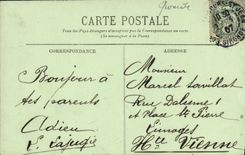 CARTE POSTALE
Tous les Pays étrangers n'acceptent pas la Correspondance au recto
(Se renseigner à la Poste)
CORRESPONDANCE
ADRESSE
Bonjour à
tes parents
Adieu
Monsieur
Marcel
Rue
et Place St Pierre
Limoges
Hte Vienne